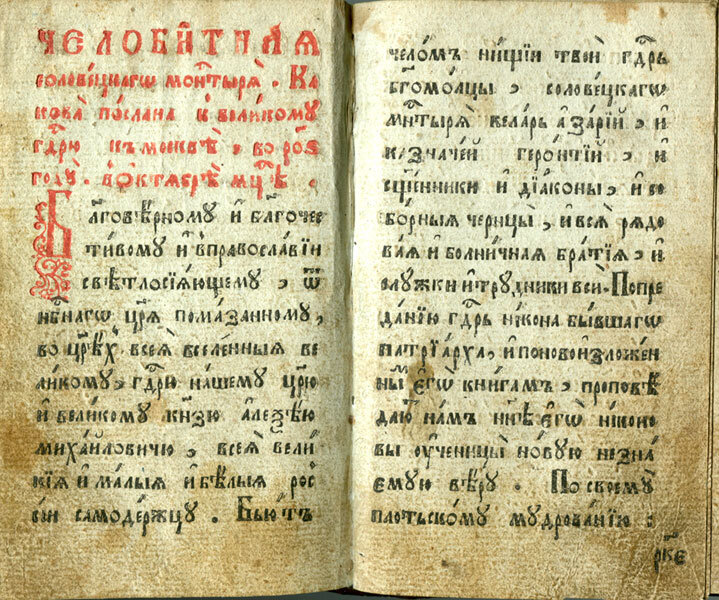 ЧЕЛОБИ́ТНАЯ
соловецкагѡ мон҇тырѧ̀ . Ка
кова̀ по́слана к̾ вели́кому
гд҇рю къ москвѣ̀ , во рѻ҃ѕ
году̀ . в̾ ѻ҆ктѧбрѣ мц҇ѣ .
Бл҃говѣ́рному и҆ бл҃гоче́с
ти́вому и҆ в̾православїи
свѣтлосїѧ́ющему , ѿ
нб҇нагѡ цр҃ѧ̀ пома́занному ,
во цр҃ѣхъ всеѧ̀ вселе́нныѧ ве
ли́кому , гд҇рю на́шему цр҃ю̀
и҆ вели́кому кн҃зю а҆леѯѣ́ю
миха́йловичю , всеѧ̀ вели́
кїѧ и҆ ма́лыѧ и҆ бѣ́лыѧ рос
сїи самоде́ржцу . Бью́тъ
чело́мъ ни́щїи твоѝ гд҇рь
бг҃омо́лцы , соловецкагѡ
мн҇тырѧ̀ ке́ларь а҆за́рїй , и҆
казначе́й геро́нтїй , и҆
сщ҃е́нники и҆ дїа́коны , и҆ со
бо́рныѧ черницы̀ , и҆ всѧ̀ рѧдо
ва́ѧ и҆ болни́чнаѧ бра́тїѧ , и҆
слу́жки и҆ тру́дники всѝ . По пре
да́нїю гд҇рь ни́кона бы́вшагѡ
патрїа́рха , и҆ по новои҆зложе́н
ны҆мъ є҆гѡ̀ кни́гамъ , проповѣ́
даютъ на́мъ нн҃ѣ є҆гѡ̀ ни́коно
вы ѹ҆ченицы̀ но́вую незна́
емую вѣ́ру . По своему̀
пло́тьскому мудрова́нїю ,
рк҃е